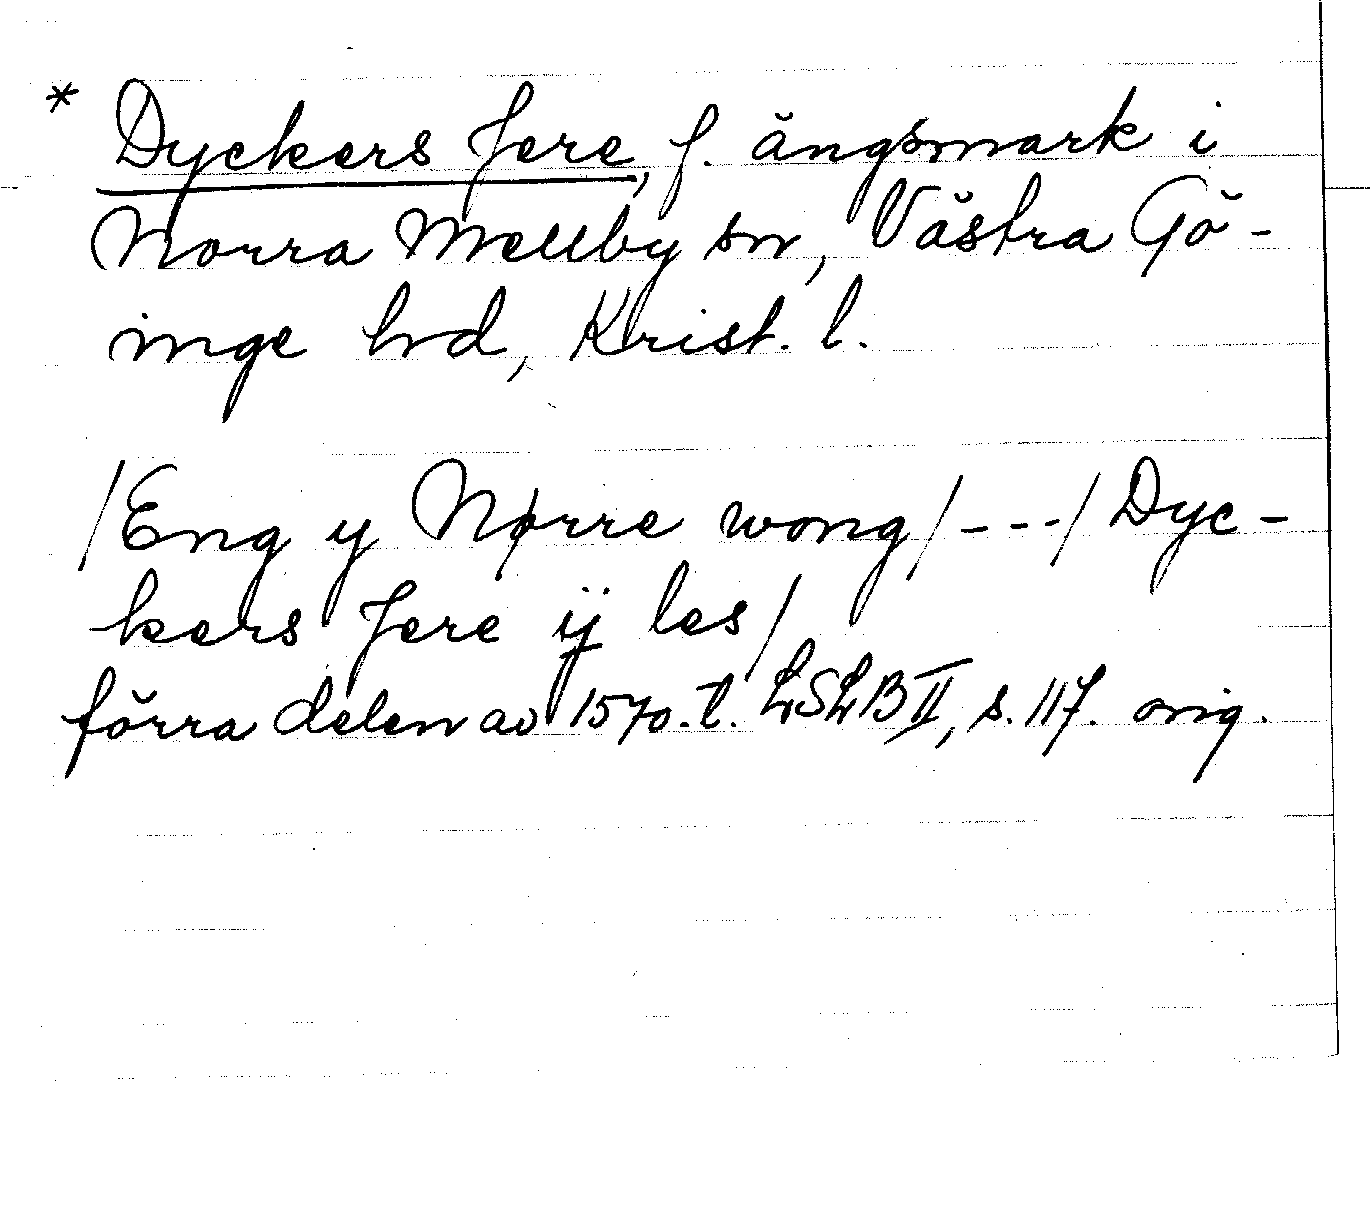 * Dyckers Jere, f. ängsmark i
Norra Mellby sn, Västra Gö-
inge hd, Krist. l.
/Eng y Nørre wong/---/Dyc-
kers Jere ij les/
förra delen av 1570-t. LSLB II, s. 117. orig.